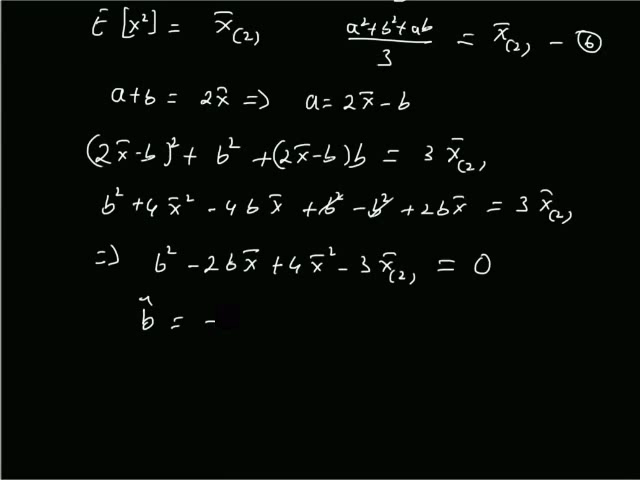 E [x²] = x̄₍₂₎   (a²+b²+ab)/3 = x̄₍₂₎ – ⑥
a+b = 2x̄ => a = 2x̄ – b
(2x̄-b)² + b² + (2x̄-b)b = 3 x̄₍₂₎
b² + 4x̄² - 4bx̄ + b² - b² + 2bx̄ = 3 x̄₍₂₎
=> b² - 2bx̄ + 4x̄² - 3x̄₍₂₎ = 0
b̂ = -